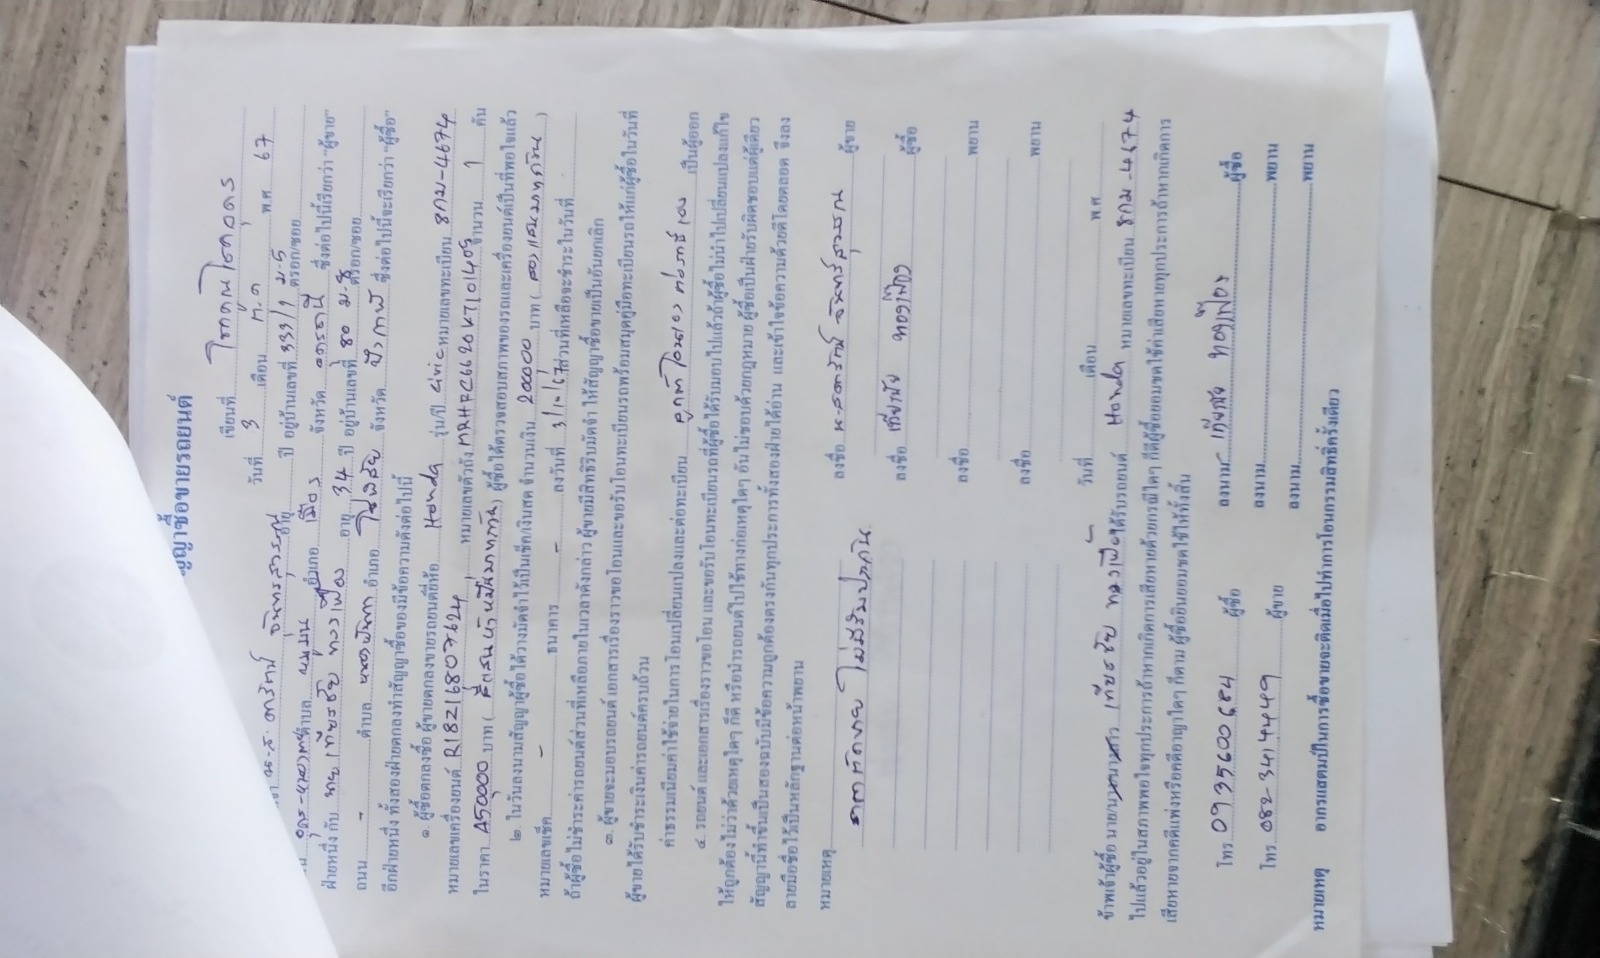 สัญญาซื้อขายรถยนต์
เขียนที่
วันที่ 3 เดือน ต.ค พ.ศ 67
อายุ ปี อยู่บ้านเลขที่ 333/1 ม-5 ตรอก/ซอย
ตำบล อำเภอ เมือง จังหวัด อุดรธานี ซึ่งต่อไปนี้เรียกว่า "ผู้ขาย"
ฝ่ายหนึ่ง กับ นาย เทียรชัย ทองเฟื่อง อายุ 34 ปี อยู่บ้านเลขที่ 80 ม-8 ตรอก/ซอย
ถนน - ตำบล อำเภอ โพธิ์ชัย จังหวัด ซึ่งต่อไปนี้จะเรียกว่า "ผู้ซื้อ"
อีกฝ่ายหนึ่ง ทั้งสองฝ่ายตกลงทำสัญญาซื้อของมีข้อความดังต่อไปนี้
๑. ผู้ซื้อตกลงซื้อ ผู้ขายตกลงขายรถยนต์ยี่ห้อ Honda รุ่น/ปี civic หมายเลขทะเบียน 8กม-4674
หมายเลขเครื่องยนต์ R18Z16807624 หมายเลขตัวถัง MRHFC6620KT101405 จำนวน 1 คัน
ในราคา 450000 บาท ( สี่แสนห้าหมื่นบาทถ้วน ) ผู้ซื้อได้ตรวจสอบสภาพของรถและเครื่องยนต์เป็นที่พอใจแล้ว
๒. ในวันลงนามสัญญาผู้ซื้อได้วางมัดจำไว้เป็นเช็ค/เงินสด จำนวนเงิน 200000 บาท ( สองแสนบาทถ้วน )
หมายเลขเช็ค - ธนาคาร - ลงวันที่ 3/10/67 ส่วนที่เหลือจะชำระในวันที่
ถ้าผู้ซื้อไม่ชำระค่ารถยนต์ส่วนที่เหลือภายในเวลาดังกล่าว ผู้ขายมีสิทธิริบมัดจำ ให้สัญญาซื้อขายเป็นอันยกเลิก
๓. ผู้ขายจะมอบรถยนต์ เอกสารเรื่องราวขอโอนและขอรับโอนทะเบียนรถพร้อมสมุดคู่มือทะเบียนรถให้แก่ผู้ซื้อในวันที่
ผู้ขายได้รับชำระเงินค่ารถยนต์ครบถ้วน
ค่าธรรมเนียมค่าใช้จ่ายในการโอนเปลี่ยนแปลงและต่อทะเบียน เป็นผู้ออก
๔. รถยนต์ และเอกสารเรื่องราวขอโอน และขอรับโอนทะเบียนรถที่ผู้ซื้อได้รับมอบไปแล้วถ้าผู้ซื้อไม่นำไปเปลี่ยนแปลงแก้ไข
ให้ถูกต้องไม่ว่าด้วยเหตุใดๆ ก็ดี หรือนำรถยนต์ไปใช้ทางก่อเหตุใดๆ อันไม่ชอบด้วยกฎหมาย ผู้ซื้อเป็นฝ่ายรับผิดชอบแต่ผู้เดียว
สัญญานี้ทำขึ้นเป็นสองฉบับมีข้อความถูกต้องตรงกันทุกประการทั้งสองฝ่ายได้อ่าน และเข้าใจข้อความด้วยดีโดยตลอด จึงลง
ลายมือชื่อไว้เป็นหลักฐานต่อหน้าพยาน
หมายเหตุ
ลงชื่อ ผู้ขาย
ลงชื่อ เทียรชัย ทองเฟื่อง ผู้ซื้อ
ลงชื่อ พยาน
ลงชื่อ พยาน
วันที่ เดือน พ.ศ
ข้าพเจ้าผู้ซื้อ นาย/นาง/นางสาว เทียรชัย ทองเฟื่อง ได้รับรถยนต์ Honda หมายเลขทะเบียน 8กม-4674
ไปแล้วอยู่ในสภาพพอใจทุกประการถ้าหากเกิดการเสียหายด้วยกรณีใดๆ ก็ดีผู้ซื้อยอมชดใช้ค่าเสียหายทุกประการถ้าหากเกิดการ
เสียหายจากคดีแพ่งหรือคดีอาญาใดๆ ก็ตาม ผู้ซื้อยินยอมชดใช้ให้ทั้งสิ้น
โทร. 0935600684 ผู้ซื้อ ลงนาม เทียรชัย ทองเฟื่อง ผู้ซื้อ
โทร. 082-3414449 ผู้ขาย ลงนาม พยาน
ลงนาม พยาน
หมายเหตุ อากรแสตมป์ในการซื้อขายจะติดเมื่อไปทำการโอนกรรมสิทธิ์ครั้งเดียว